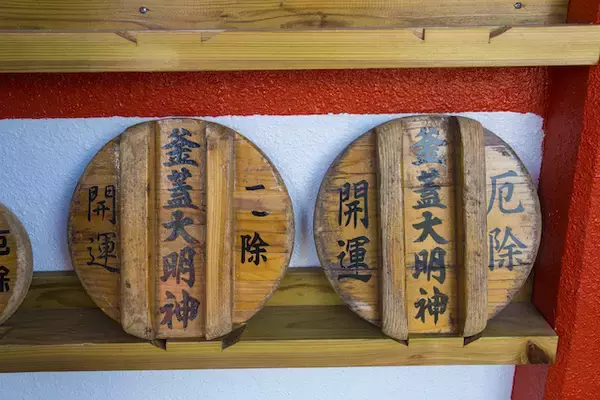 厄除
二除
釜蓋大明神
開運
厄除
釜蓋大明神
開運